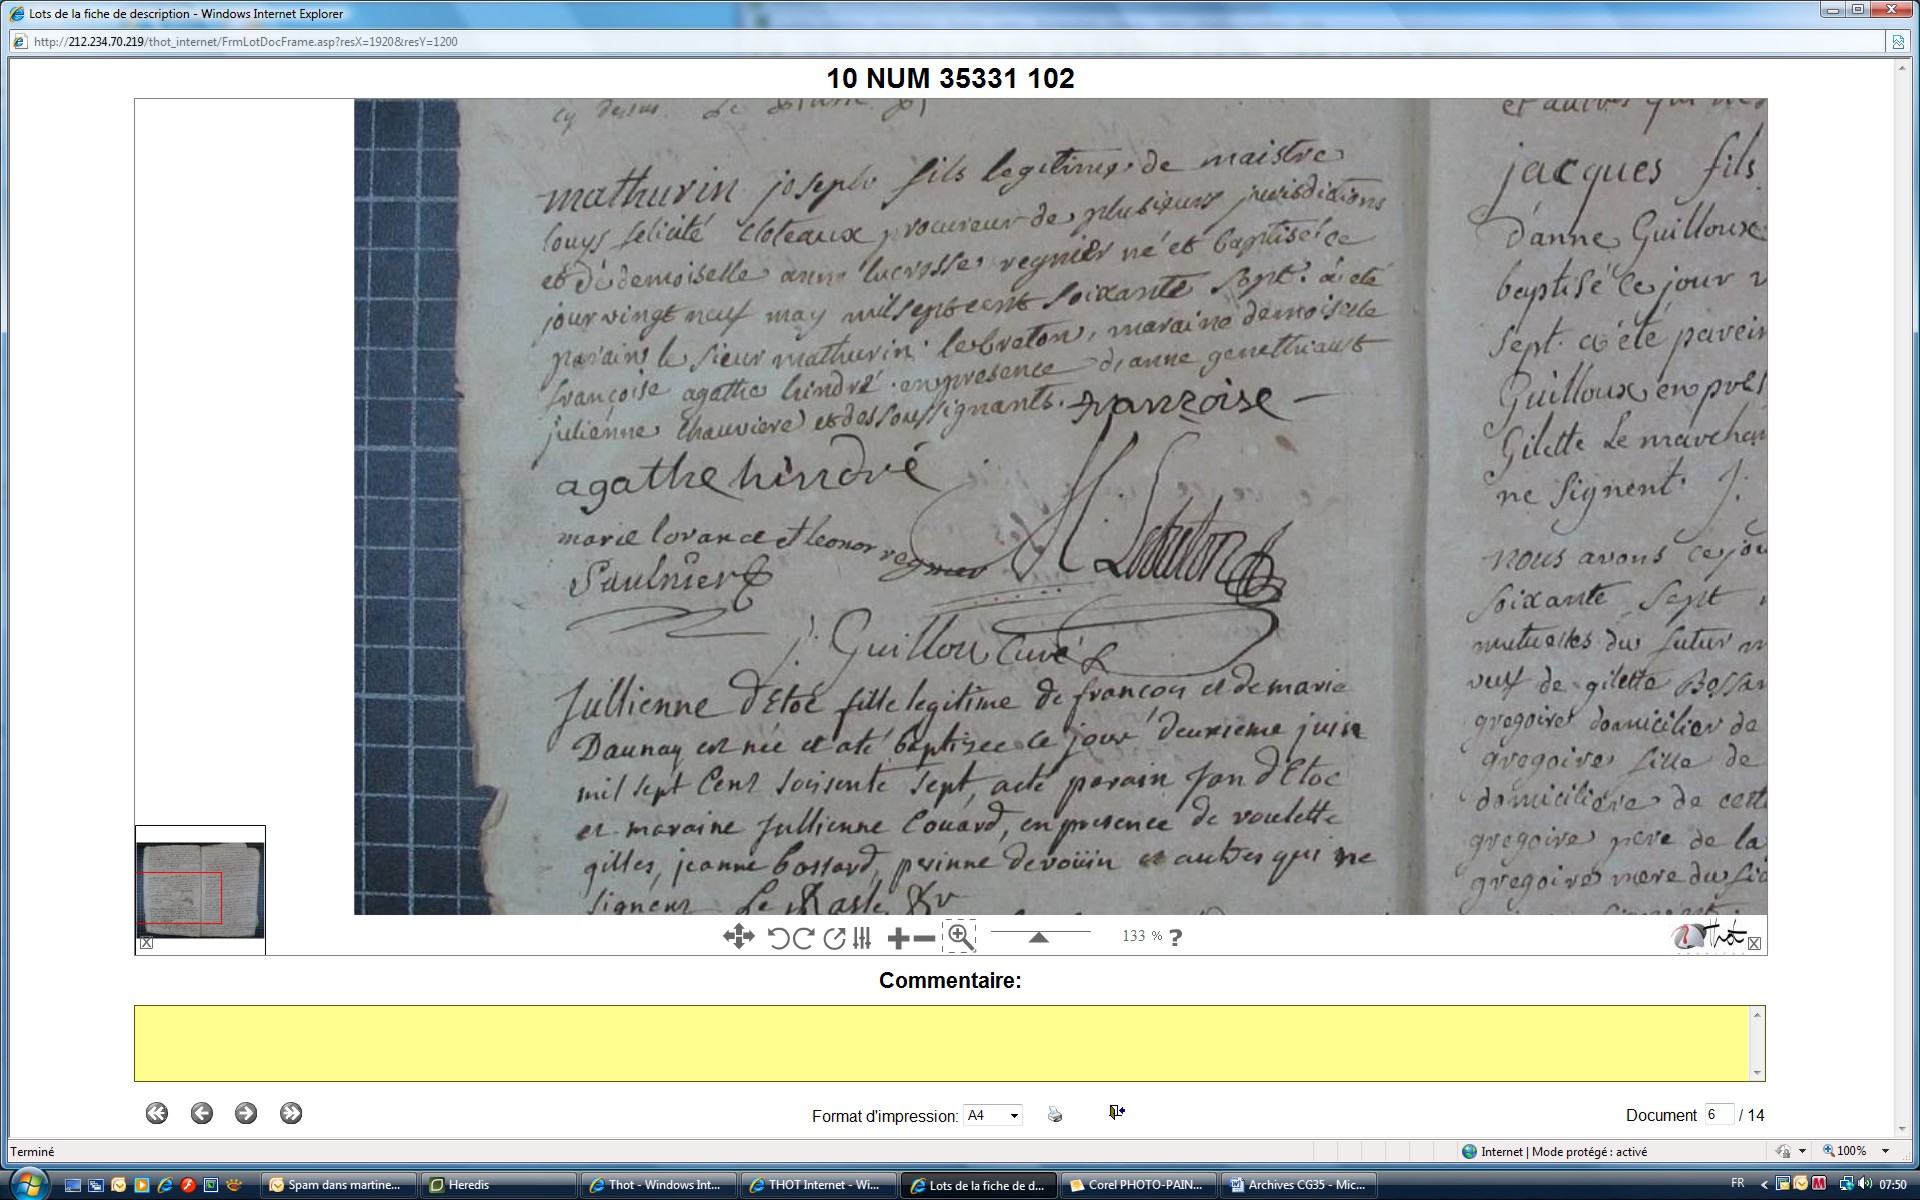 Lots de la fiche de description - Windows Internet Explorer
http://212.234.70.219/thot_internet/FrmLotDocFrame.asp?resX=1920&resY=1200
10 NUM 35331 102
cy dessus
mathurin joseph fils legitime de maistre
louys felicité cloteaux procureur de plusieurs jurisdictions
et de demoiselle anne lucresse regnier né et baptisé ce
jour vingt neuf may mil sept cent soixante sept. a été
parain le sieur mathurin lebreton, maraine demoiselle
françoise agathe hindré en presence d'anne genethiault
julienne chauviere et des soussignants. françoise
agathe hindré
marie lorance Eleonor regnier
M. Lebreton
Saulnier
j. Guillou Curé
Jullienne d'Etoc fille legitime de françois et de marie
Daunay est née et até baptizee ce jour deuxieme juin
mil sept Cent soisente sept, acté parain Jan d'Etoc
et maraine Jullienne Couard, en presence de
gilles, jeanne bossard, perinne et autres qui ne
signent Le
et autres qui ne
jacques fils
d'anne Guilloux
baptisé ce jour
sept. a été
Guilloux en
Gilette Le
ne signent
nous avons ce
soixante sept
mutuelles du futur
de gilette
gregoire domicilier de
gregoire fille de
domiciliere de
gregoire pere de la
gregoire mere du
133 % ?
Thot
Commentaire:
Format d'impression: A4
Document 6 / 14
Terminé
Internet | Mode protégé : activé
100%
Spam dans martine...
Heredis
Thot - Windows Int...
THOT Internet - Wi...
Lots de la fiche de d...
Corel PHOTO-PAIN...
Archives CG35 - Mic...
FR
07:50